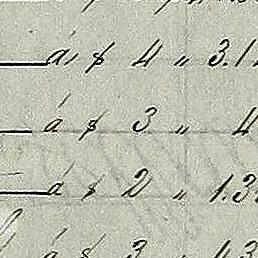 á $ 4 " 3.1
á $ 3 " 4
á $ 2 " 1.3
á $ 3 " 13